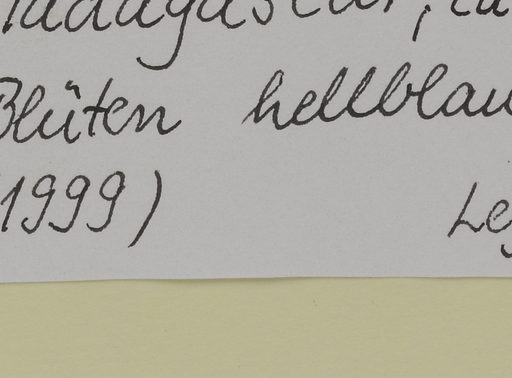 Madagascar,
Blüten hellblau
(1999) Leg